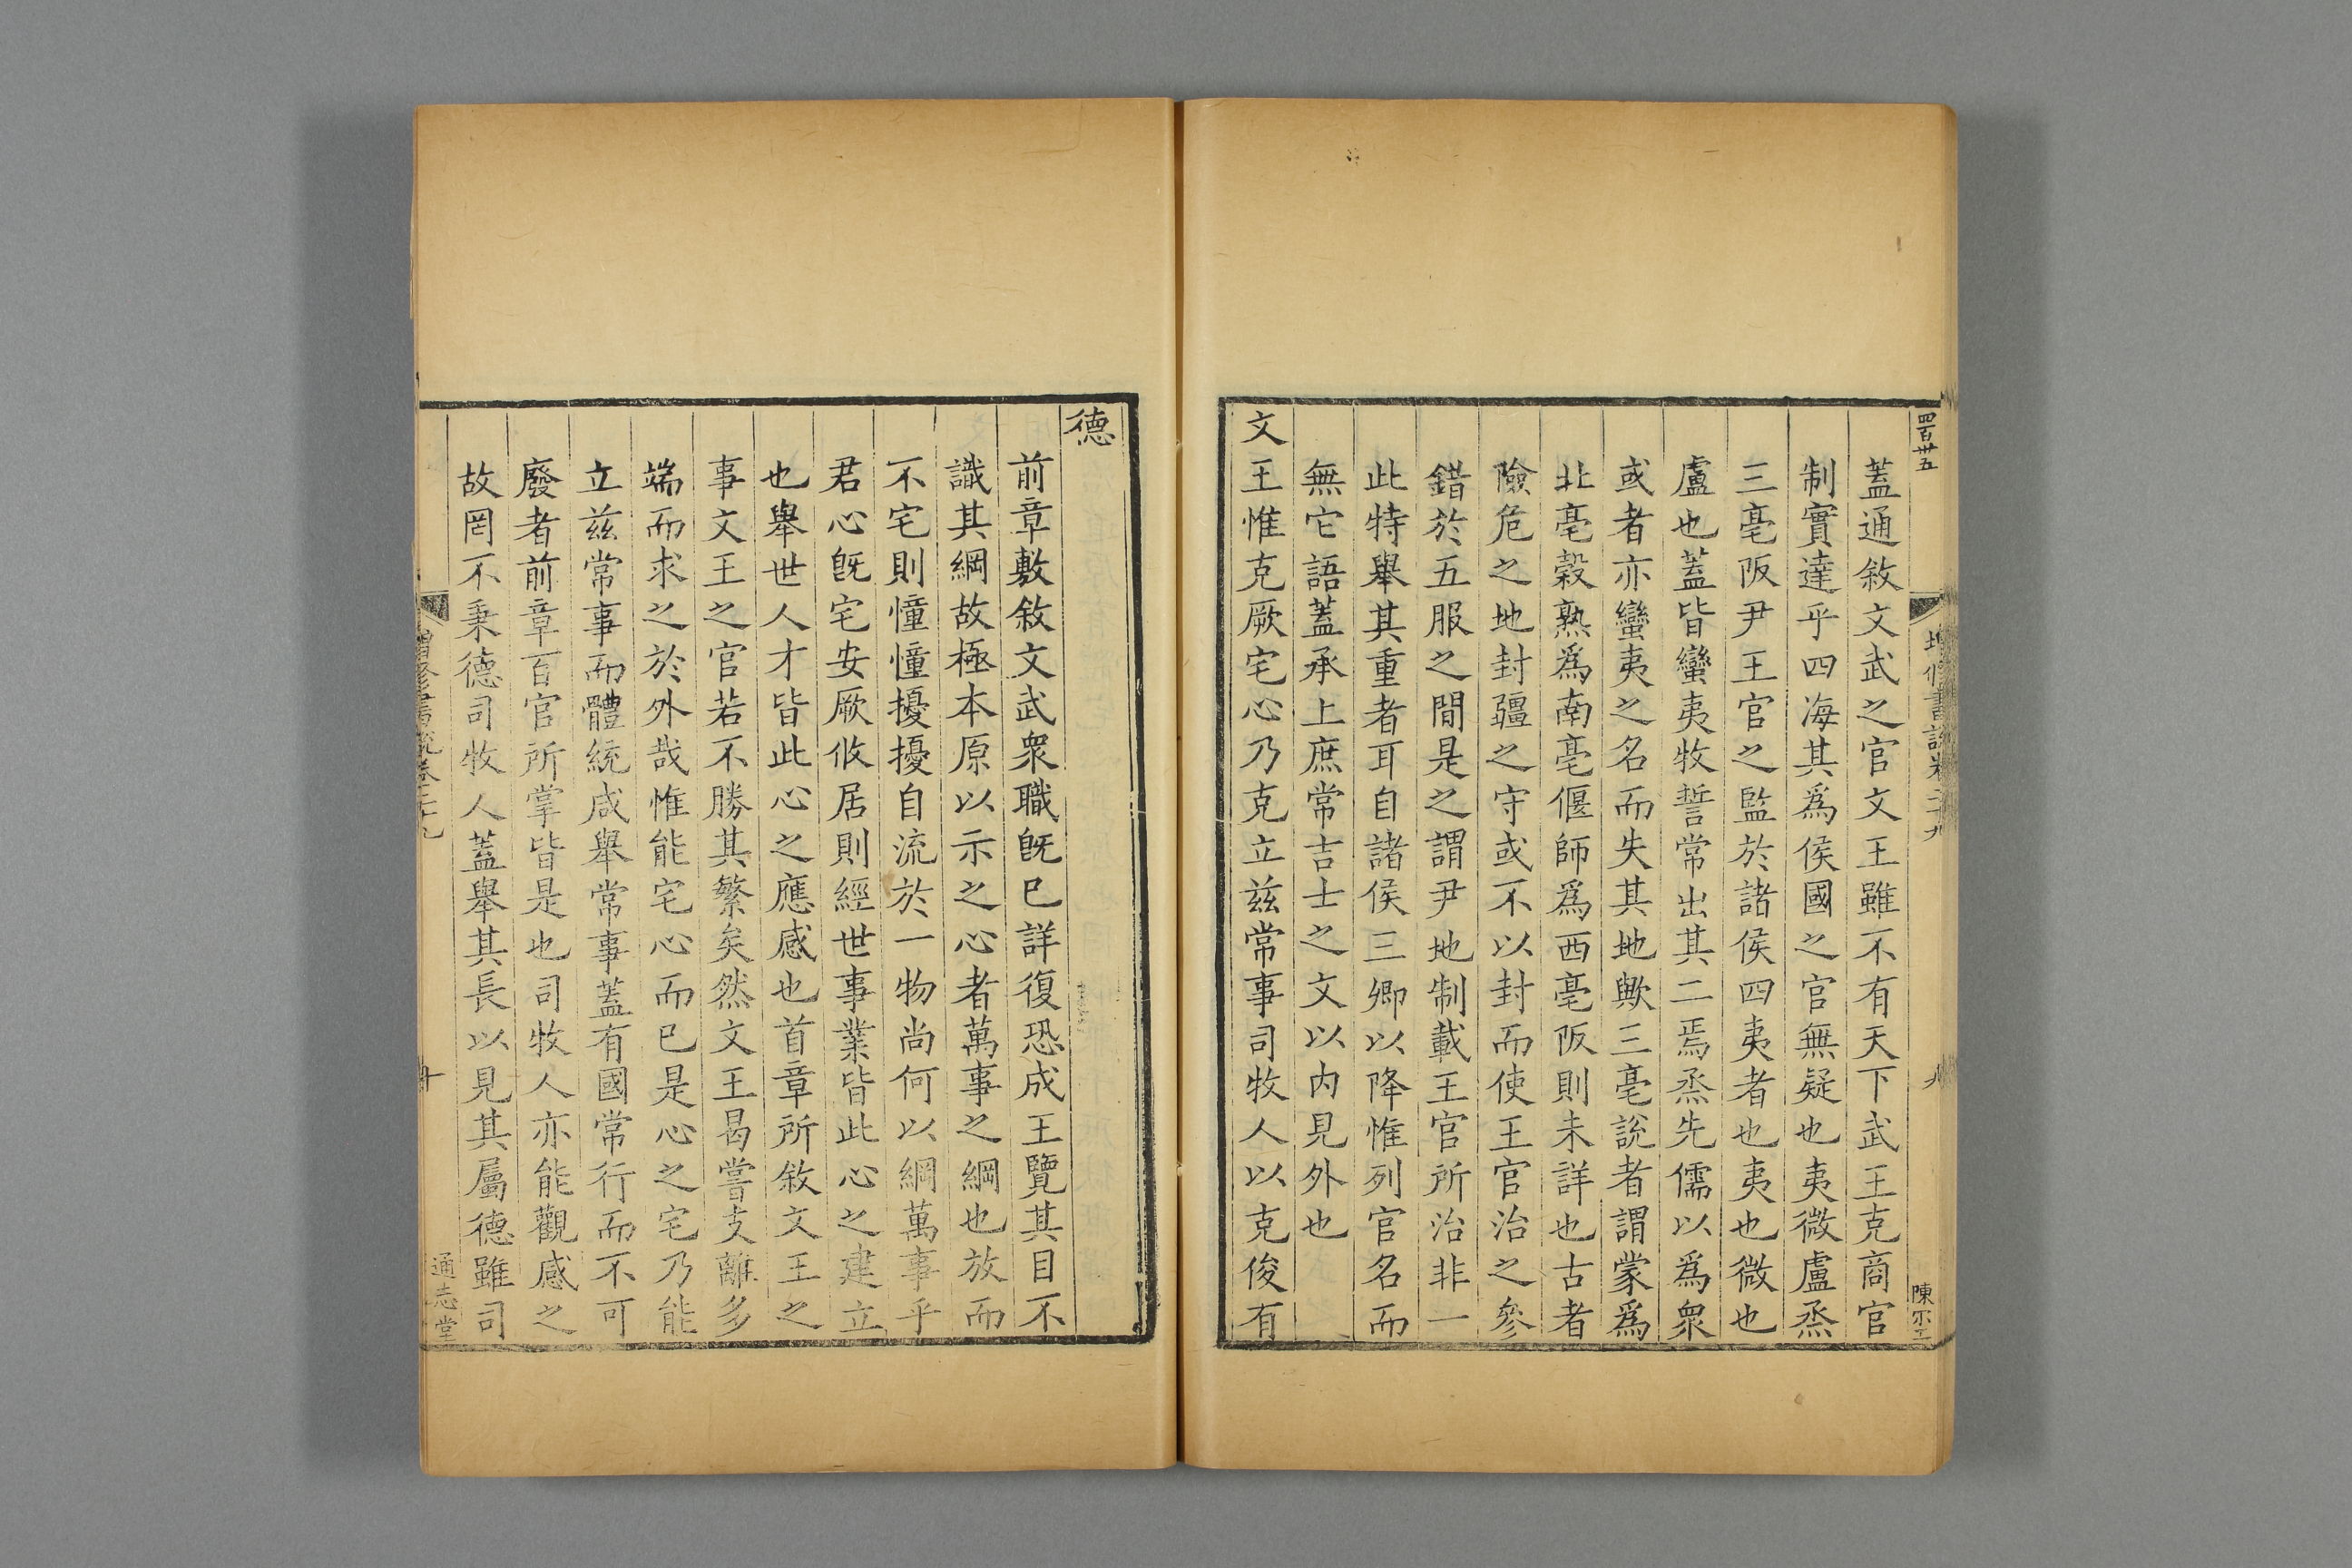 四百卅五
增修書說卷二十九
九
陳尔工
蓋通敘文武之官文王雖不有天下武王克商官
制實達乎四海其爲侯國之官無疑也夷微盧烝
三亳阪尹王官之監於諸侯四夷者也夷也微也
盧也蓋皆蠻夷牧誓常出其二焉烝先儒以爲衆
或者亦蠻夷之名而失其地歟三亳說者謂蒙爲
北亳穀熟爲南亳偃師爲西亳阪則未詳也古者
險危之地封疆之守或不以封而使王官治之參
錯於五服之間是之謂尹地制載王官所治非一
此特舉其重者耳自諸侯三卿以降惟列官名而
無它語蓋承上庶常吉士之文以内見外也
文王惟克厥宅心乃克立兹常事司牧人以克俊有
德
前章敷敘文武衆職旣已詳復恐成王覽其目不
識其綱故極本原以示之心者萬事之綱也放而
不宅則憧憧擾擾自流於一物尚何以綱萬事乎
君心旣宅安厥攸居則經世事業皆此心之建立
也舉世人才皆此心之應感也首章所敘文王之
事文王之官若不勝其繁矣然文王曷嘗支離多
端而求之於外哉惟能宅心而已是心之宅乃能
立兹常事而體統咸舉常事蓋有國常行而不可
廢者前章百官所掌皆是也司牧人亦能觀感之
故罔不秉德司牧人蓋舉其長以見其屬德雖司
增修書說卷二十九
十
通志堂